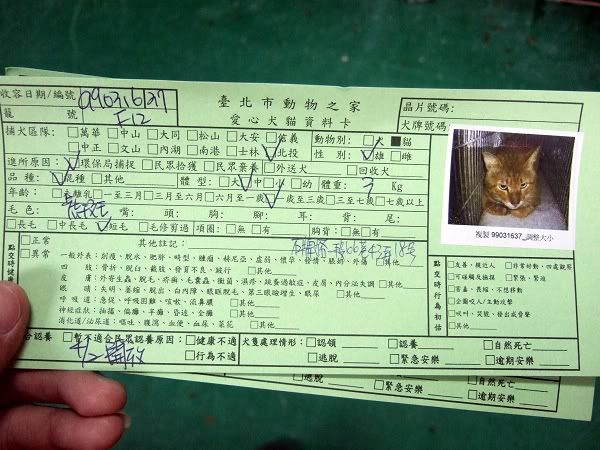 收容日期/編號 99031637
臺北市動物之家
晶片號碼:
籠 號 F12
愛心犬貓資料卡
犬牌號碼:
捕犬區隊: □萬華 □中山 □大同 □松山 □大安 □信義 動物別: □犬 ■貓
□中正 □文山 □內湖 □南港 □士林 □北投 性 別: □雄 □雌
進所原因: □環保局捕捉 □民眾拾獲 □民眾棄養 □外送犬 □回收犬
品 種: □混種 □其他 體 型: □大 □中 □小 □幼 體重: 3 Kg
年齡: □未離乳 □一至三月 □三月至六月 □六月至一歲 □一歲至三歲 □三至七歲 □七歲以上
毛 色: 嘴: 頭: 胸: 腳: 耳: 背: 尾:
□長毛 □中長毛 □短毛 □毛修剪過 項圈: □無 □有 胸背: □無 □有
複製 99031637_調整大小
點交時健康
□正常
□異常
其他註記:
一般外表: 削瘦、脫水、肥胖、畸型、腫瘤、赫尼亞、虛弱、懷孕、發情、脹奶、外傷 □其他
四 肢: 骨折、脫臼、截肢、發育不良、跛行 □其他
皮 膚: 外寄生蟲、脫毛、疥癬、毛囊蟲、黴菌、濕疹、跳蚤過敏症、皮屑、內分泌失調 □其他
眼 睛: 失明、萎縮、脫出、白內障、眼瞼脫毛、第三眼瞼增生、眼屎 □其他
呼 吸 道: 急促、呼吸困難、咳嗽、流鼻膿 □其他
神經症狀: 抽搐、偏癱、半癱、昏迷、全癱 □其他
消化道/泌尿道: 嘔吐、腹瀉、血便、血尿、菜花 □其他
點交時行為初估
□友善、親近人 □非常好動、四處觀察
□可碰觸及撫摸 □緊張、緊迫
□害羞、畏縮、不想移動
□企圖咬人/主動攻擊
□吠叫、哭號、發出威脅聲
□其他
合認養 □暫不適合民眾認養原因: □健康不適 □行為不適
犬隻處理情形: □認領 □認養 □自然死亡
□逃脫 □緊急安樂 □逾期安樂
□自然死亡
□逃脫 □緊急安樂 □逾期安樂